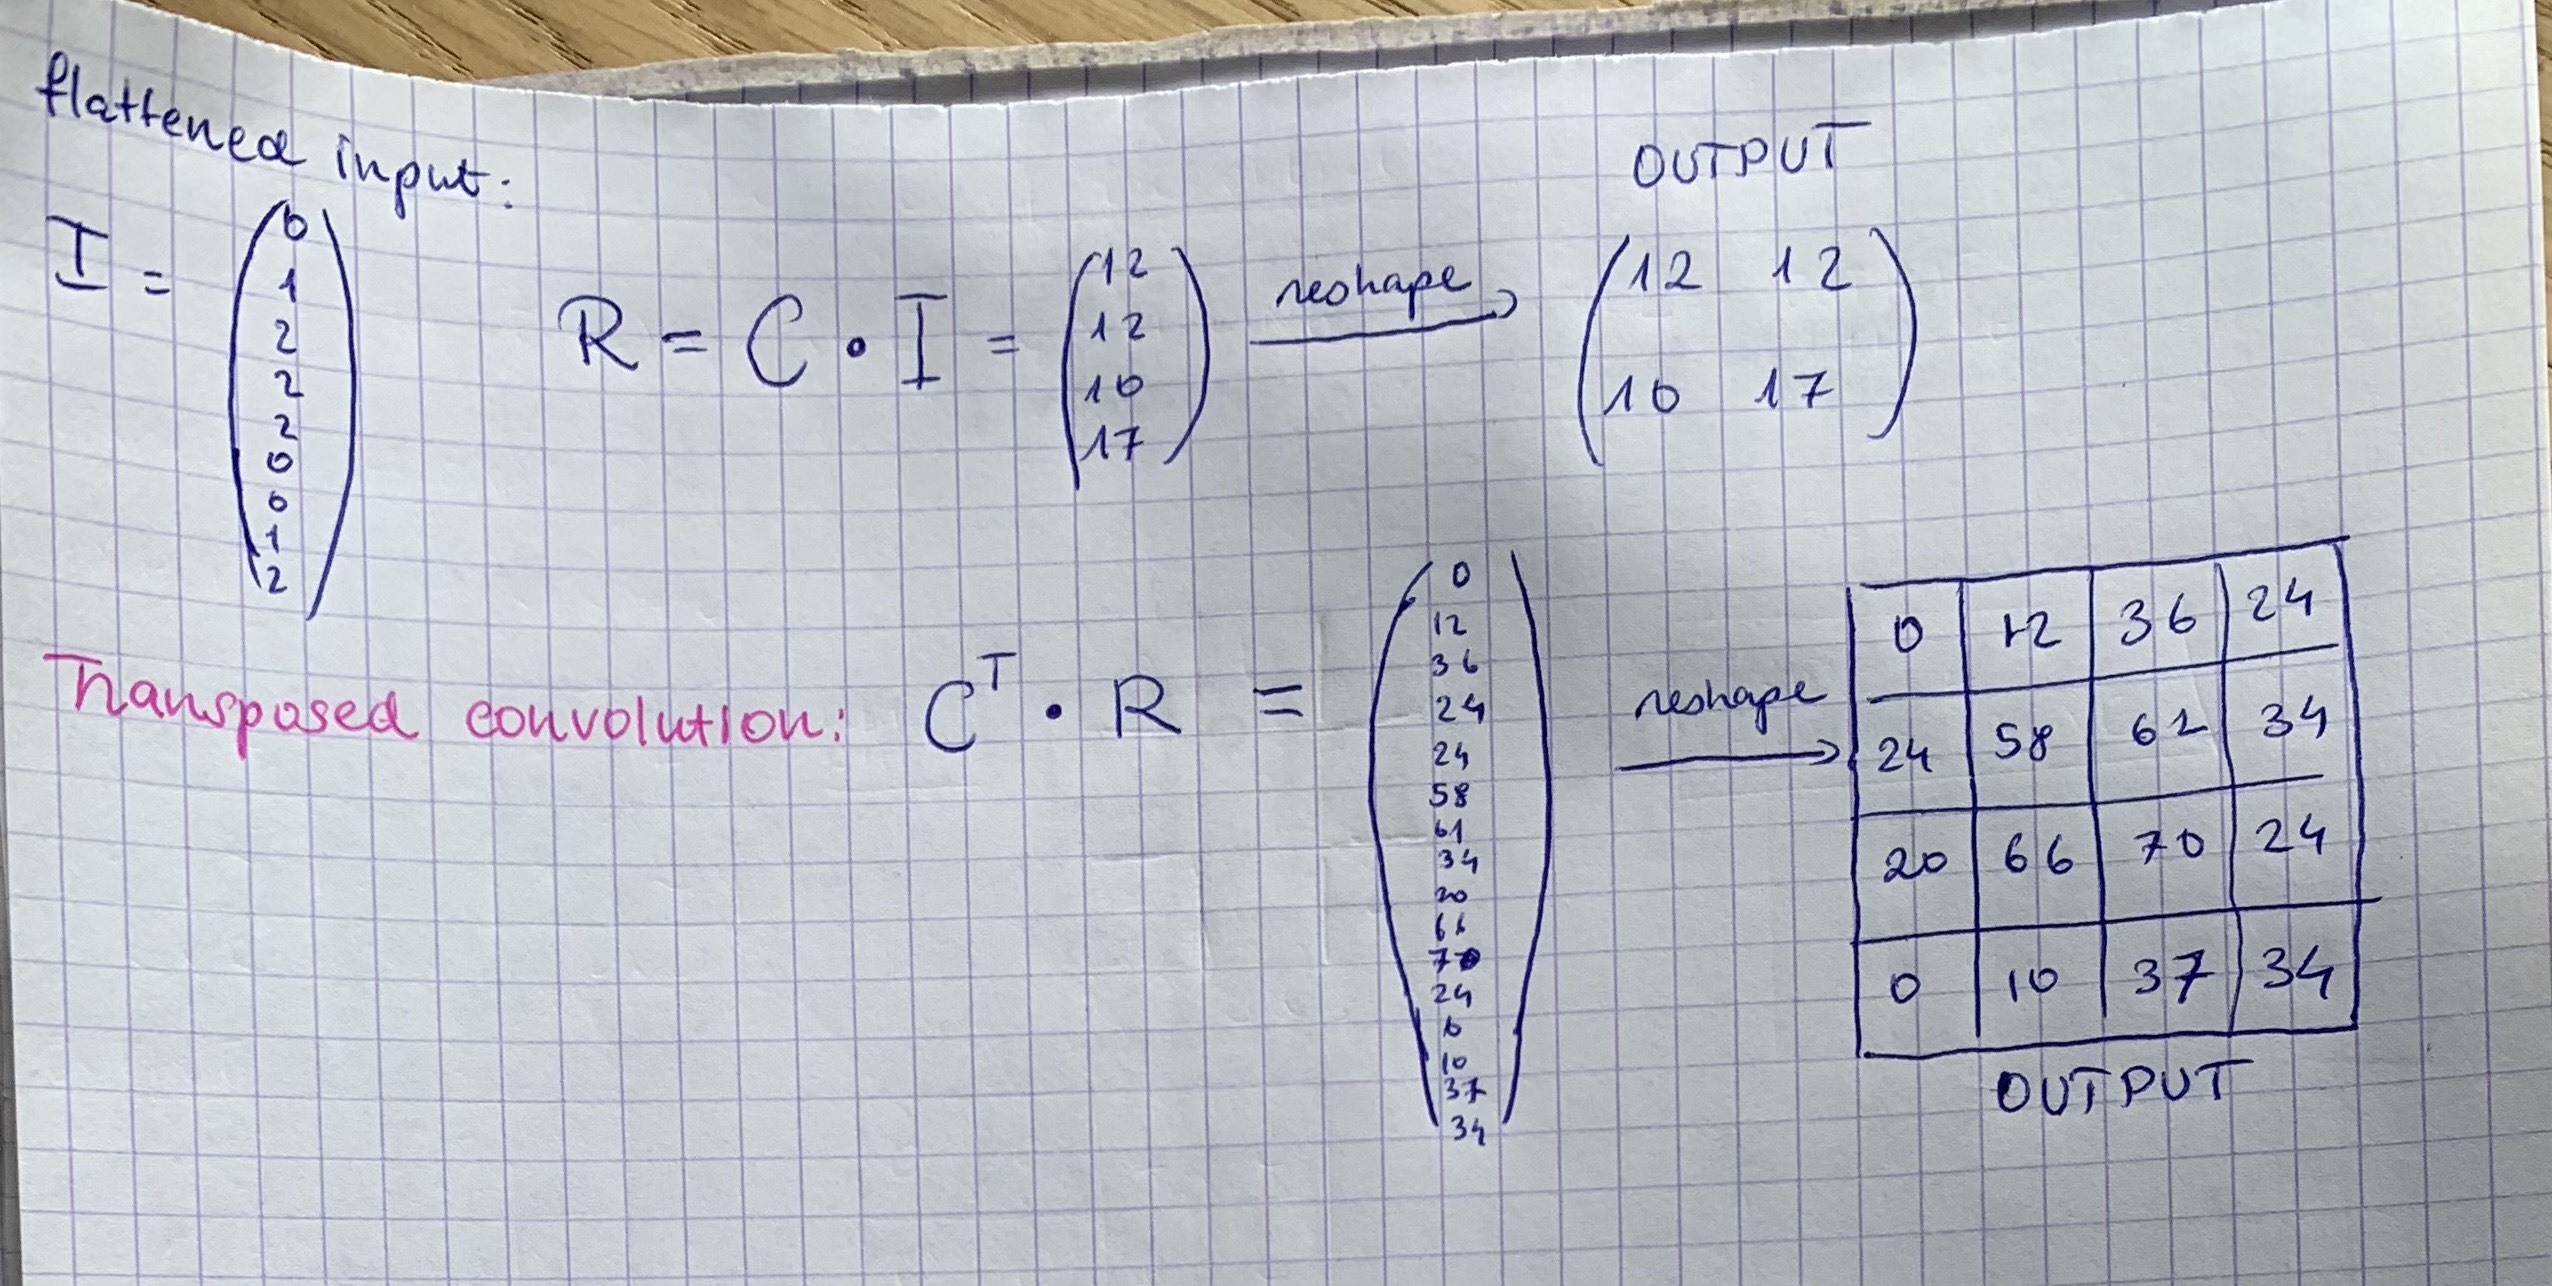 flattened input:
I = (0 1 2 2 2 0 0 1 2)
R = C • I = (12 12 10 17) reshape
OUTPUT
12 12
10 17
Transposed convolution: C^T • R = (0 12 36 24 24 58 61 34 20 66 70 24 0 10 37 34) reshape
0 12 36 24
24 58 61 34
20 66 70 24
0 10 37 34
OUTPUT